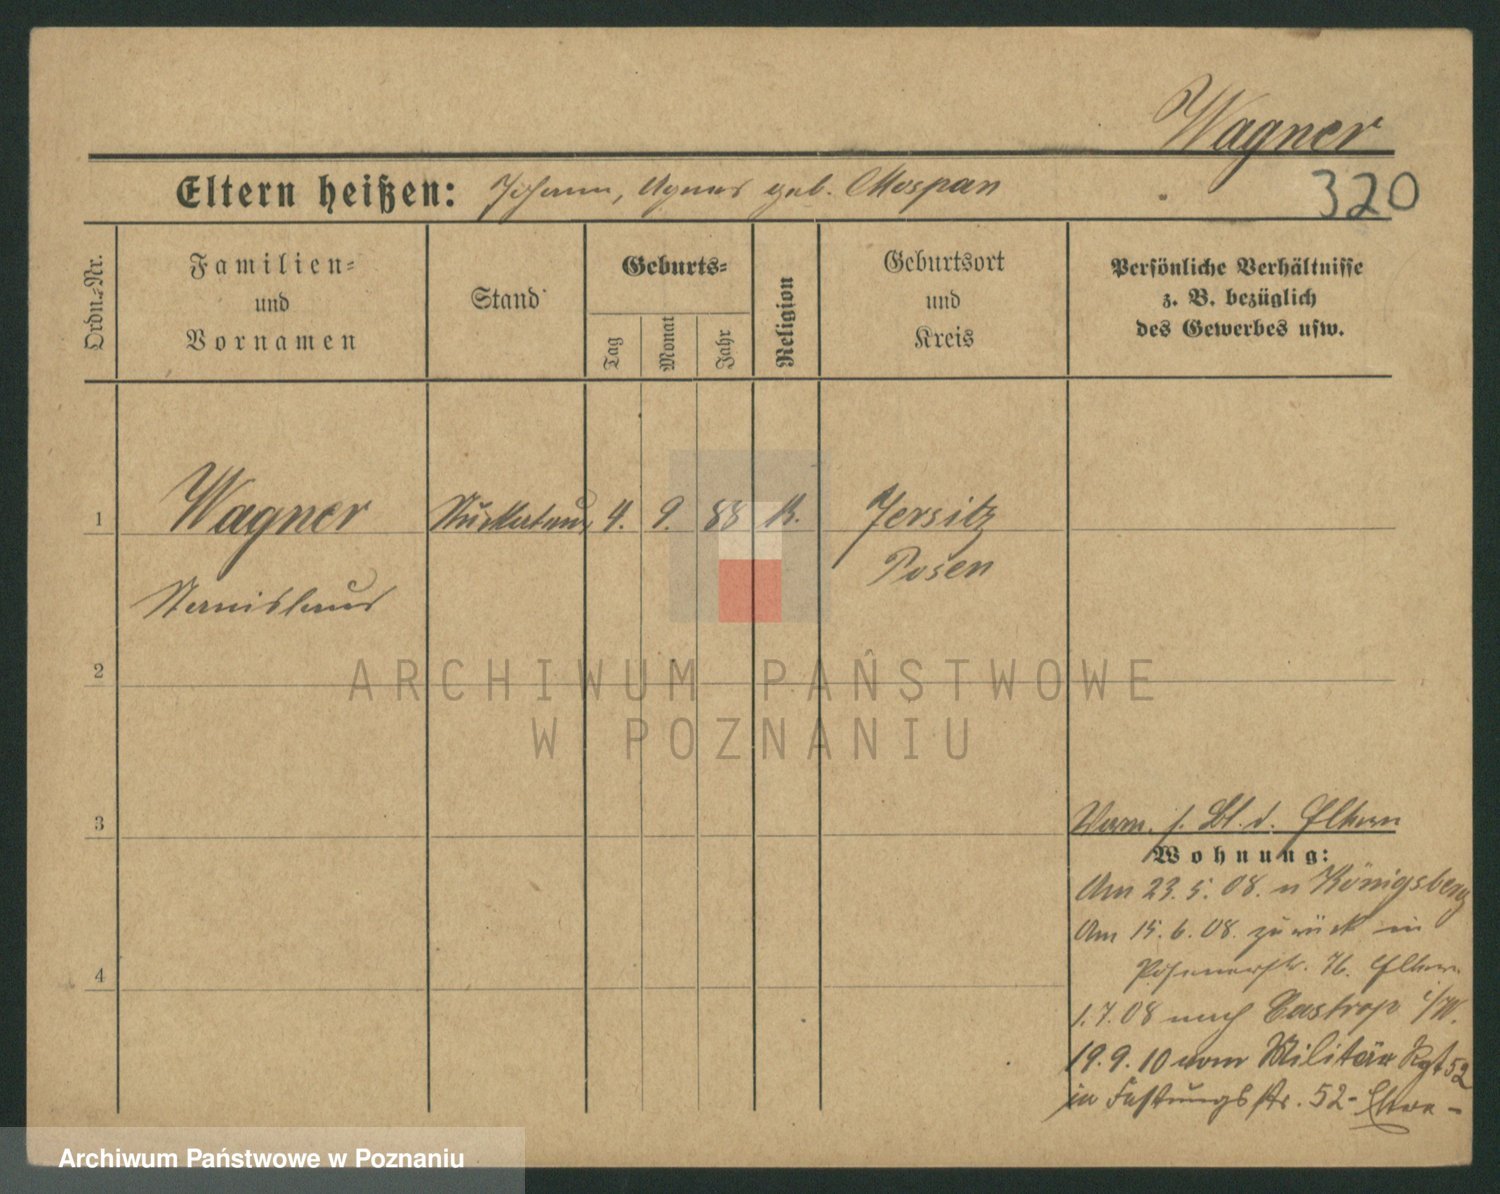 Wagner
Eltern heißen: Johann, Agnes geb. Mospan
320
Ordn.-Nr.
Familien-
und
Vornamen
Stand
Geburts-
Tag
Monat
Jahr
Religion
Geburtsort
und
Kreis
Persönliche Verhältnisse
z. B. bezüglich
des Gewerbes usw.
1 Wagner 4. 9. 88 K. Jersitz
Stanislaus Posen
2
3
Vorm. s. Bl. d. Eltern
Wohnung:
Am 23.5.08. n Königsberg
Am 15.6.08. zurück in
Posenerstr. Eltern
4
1.7.08 nach Castrop i/W.
19.9.10 vom Militär Rgt 52
in Festungsstr. 52-
ARCHIWUM PAŃSTWOWE
W POZNANIU
Archiwum Państwowe w Poznaniu